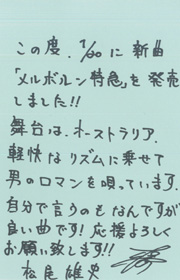 この度、1/20に新曲
「メルボルン特急」を発売
しました!!
舞台は、オーストラリア。
軽快なリズムに乗せて
男のロマンを唄っています。
自分で言うのもなんですが
良い曲です!応援よろしく
お願い致します!!
松尾雄史